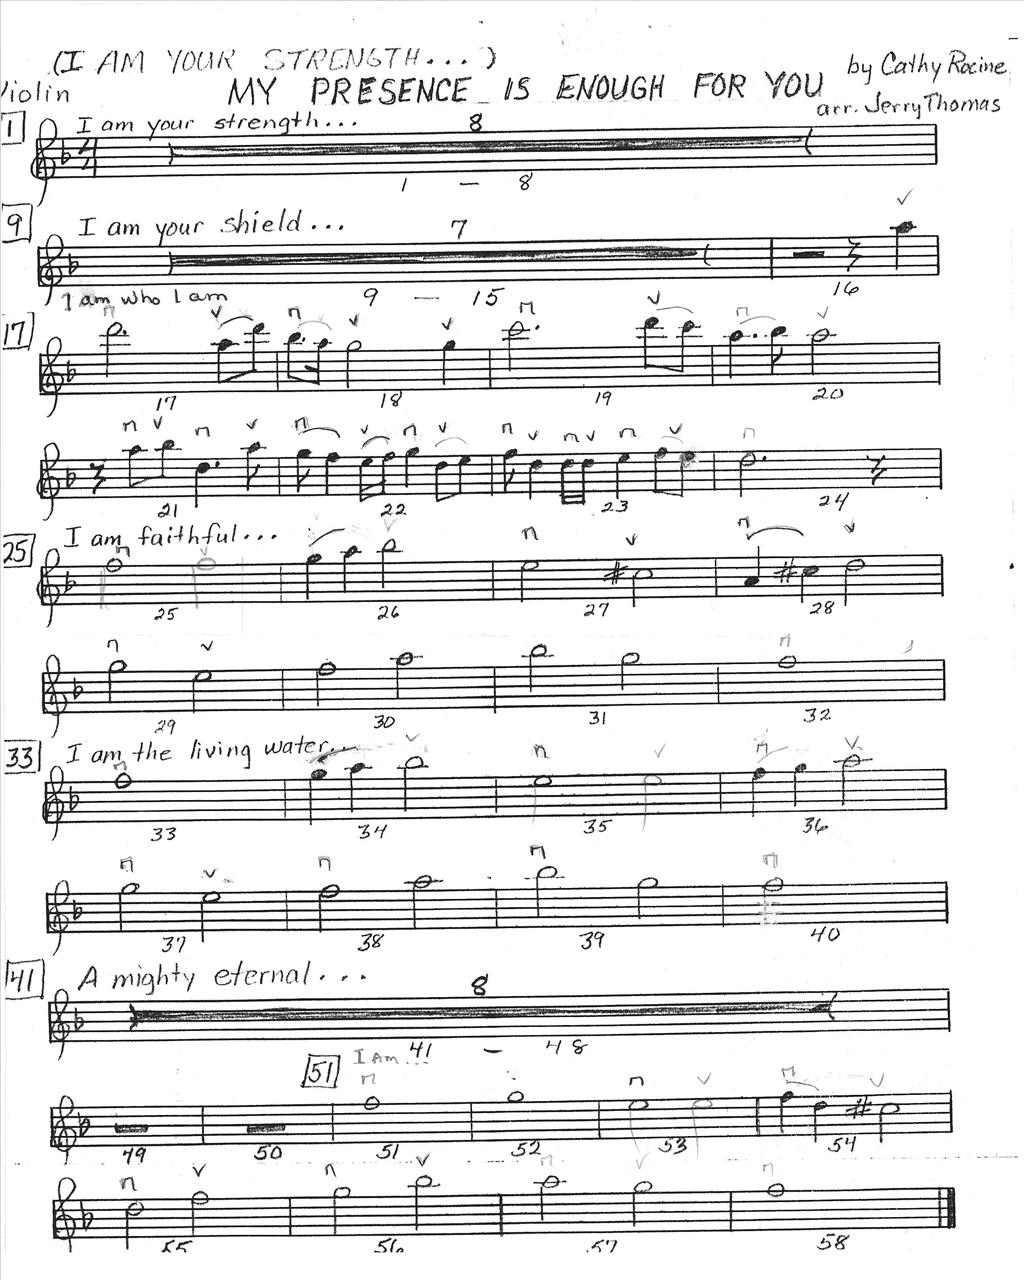 (I AM YOUR STRENGTH...)
Violin MY PRESENCE IS ENOUGH FOR YOU by Cathy Racine
arr. Jerry Thomas
1 I am your strength... 8
1 - 8
9 I am your shield... 7
9 - 15 16
I am who I am
17
17 18 19 20
21 22 23 24
25 I am faithful...
25 26 27 28
29 30 31 32
33 I am the living water...
33 34 35 36
37 38 39 40
41 A mighty eternal... 8
41 - 48
51 I Am...
49 50 51 52 53 54
55 56 57 58